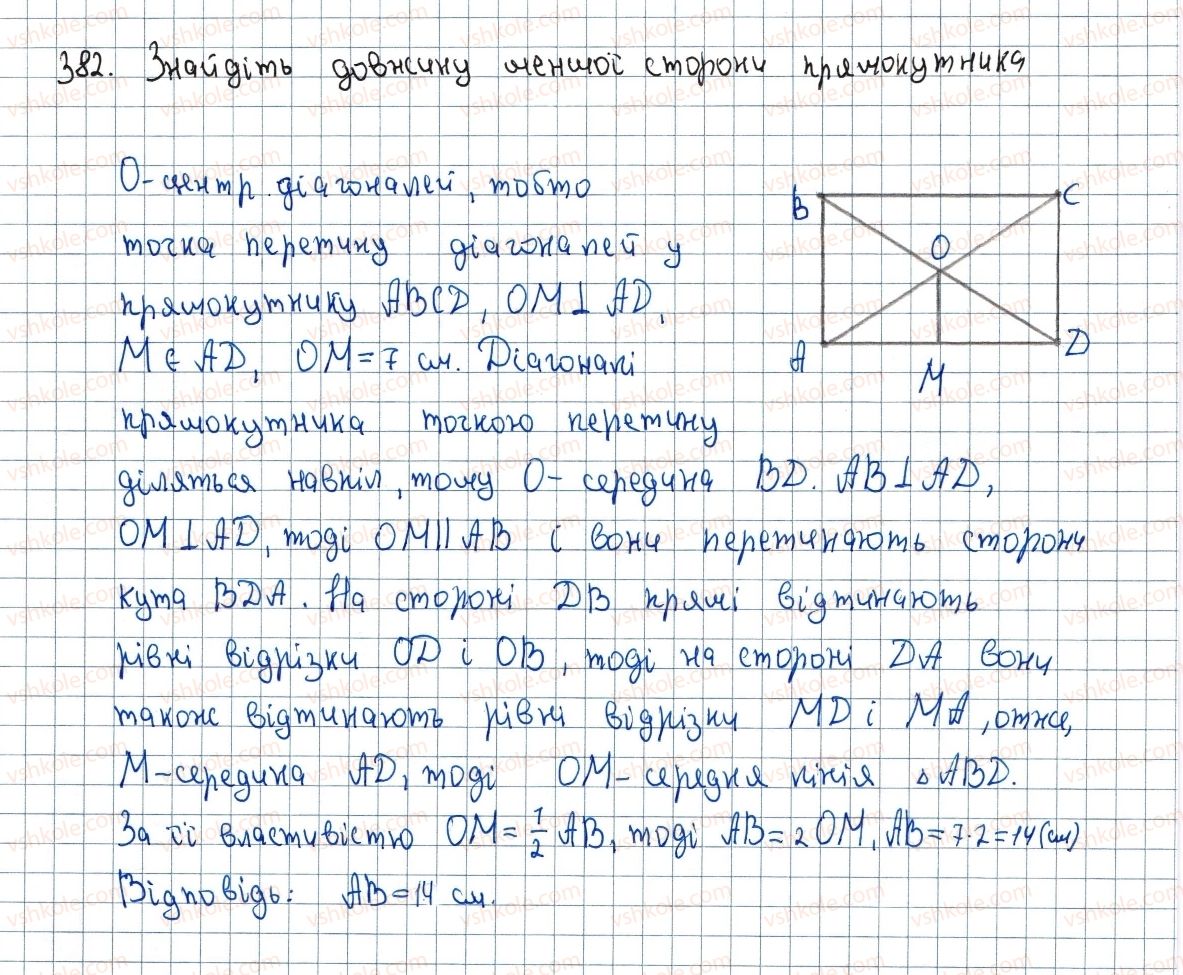 382. Знайдіть довжину меншої сторони прямокутника
О-центр діагоналей, тобто
точка перетину діагоналей у
прямокутнику ABCD, OM⊥AD,
M∈AD, OM=7 см. Діагоналі
прямокутника точкою перетину
діляться навпіл, тому О- середина BD. AB⊥AD,
OM⊥AD, тоді OM||AB і вони перетинають сторони
кута BDA. На стороні DB прямі відтинають
рівні відрізки OD і OB, тоді на стороні DA вони
також відтинають рівні відрізки MD і MA, отже,
M-середина AD, тоді OM- середня лінія △ABD.
За її властивістю OM=1/2 AB, тоді AB=2OM, AB=7·2=14(см)
Відповідь: AB=14 см.
B
C
O
A
M
D
vshkole.com